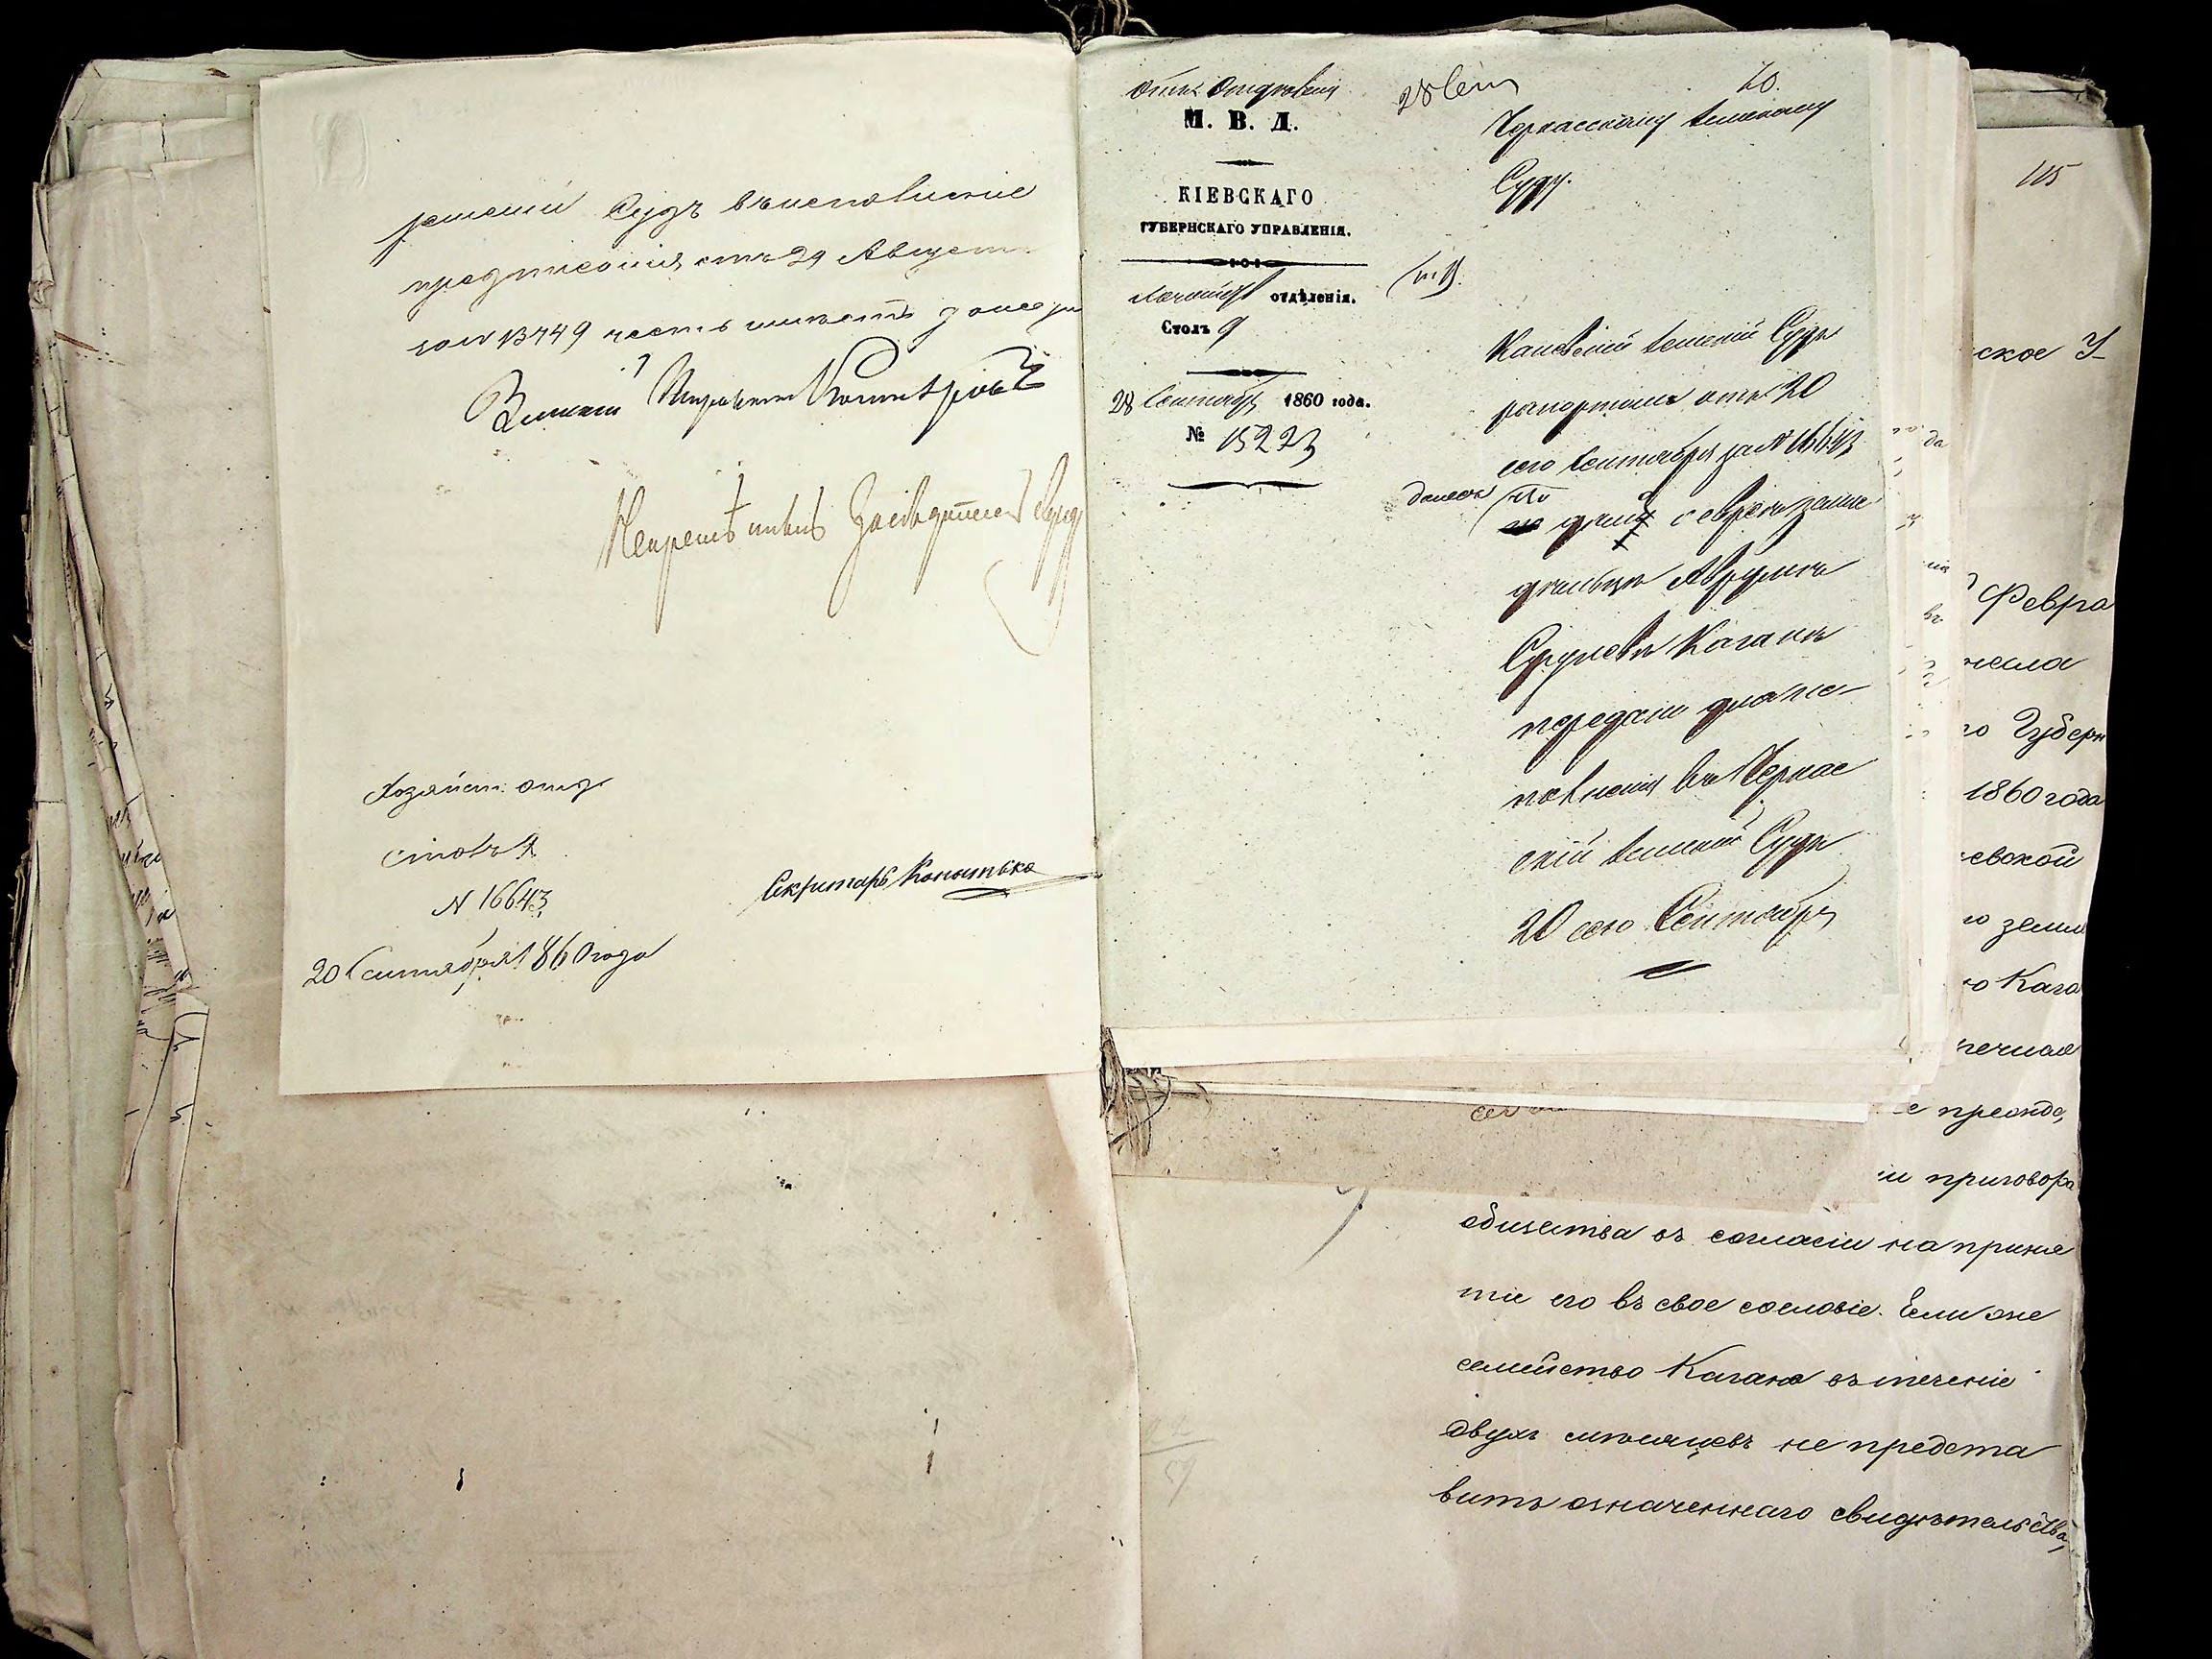 Судъ въ исполненіе
предписанія отъ 29 Августа
за № 13449 честь имѣетъ донести
Земскій Исправникъ
Непремѣнный Засѣдатель
Хозяйст. отд.
столъ 9
№ 16643
20 Сентября 1860 года
Секретарь
М. В. Д.
КІЕВСКАГО
ГУБЕРНСКАГО УПРАВЛЕНІЯ.
отдѣленія.
Столъ 9
28 Сентября 1860 года.
№ 15223
28 Сент
70.
Черкасскому Земскому
Суду.
Каневскій Земскій Судъ
рапортомъ отъ 20
сего Сентября за № 16643
донесъ что
о евреѣ земле
дѣльцѣ
Каганѣ
переданы для ис
полненія въ Черкас
скій Земскій Судъ
20 сего Сентября
115
ское У
Февра
числа
го Губерн
1860 года
евской
о земл
о Кага
печилъ
е предс
и приговора
общества въ согласіи на приня
тіе его въ свое сословіе. Если же
семейство Кагана въ теченіе
двухъ мѣсяцевъ не предста
витъ означеннаго свидѣтельства,